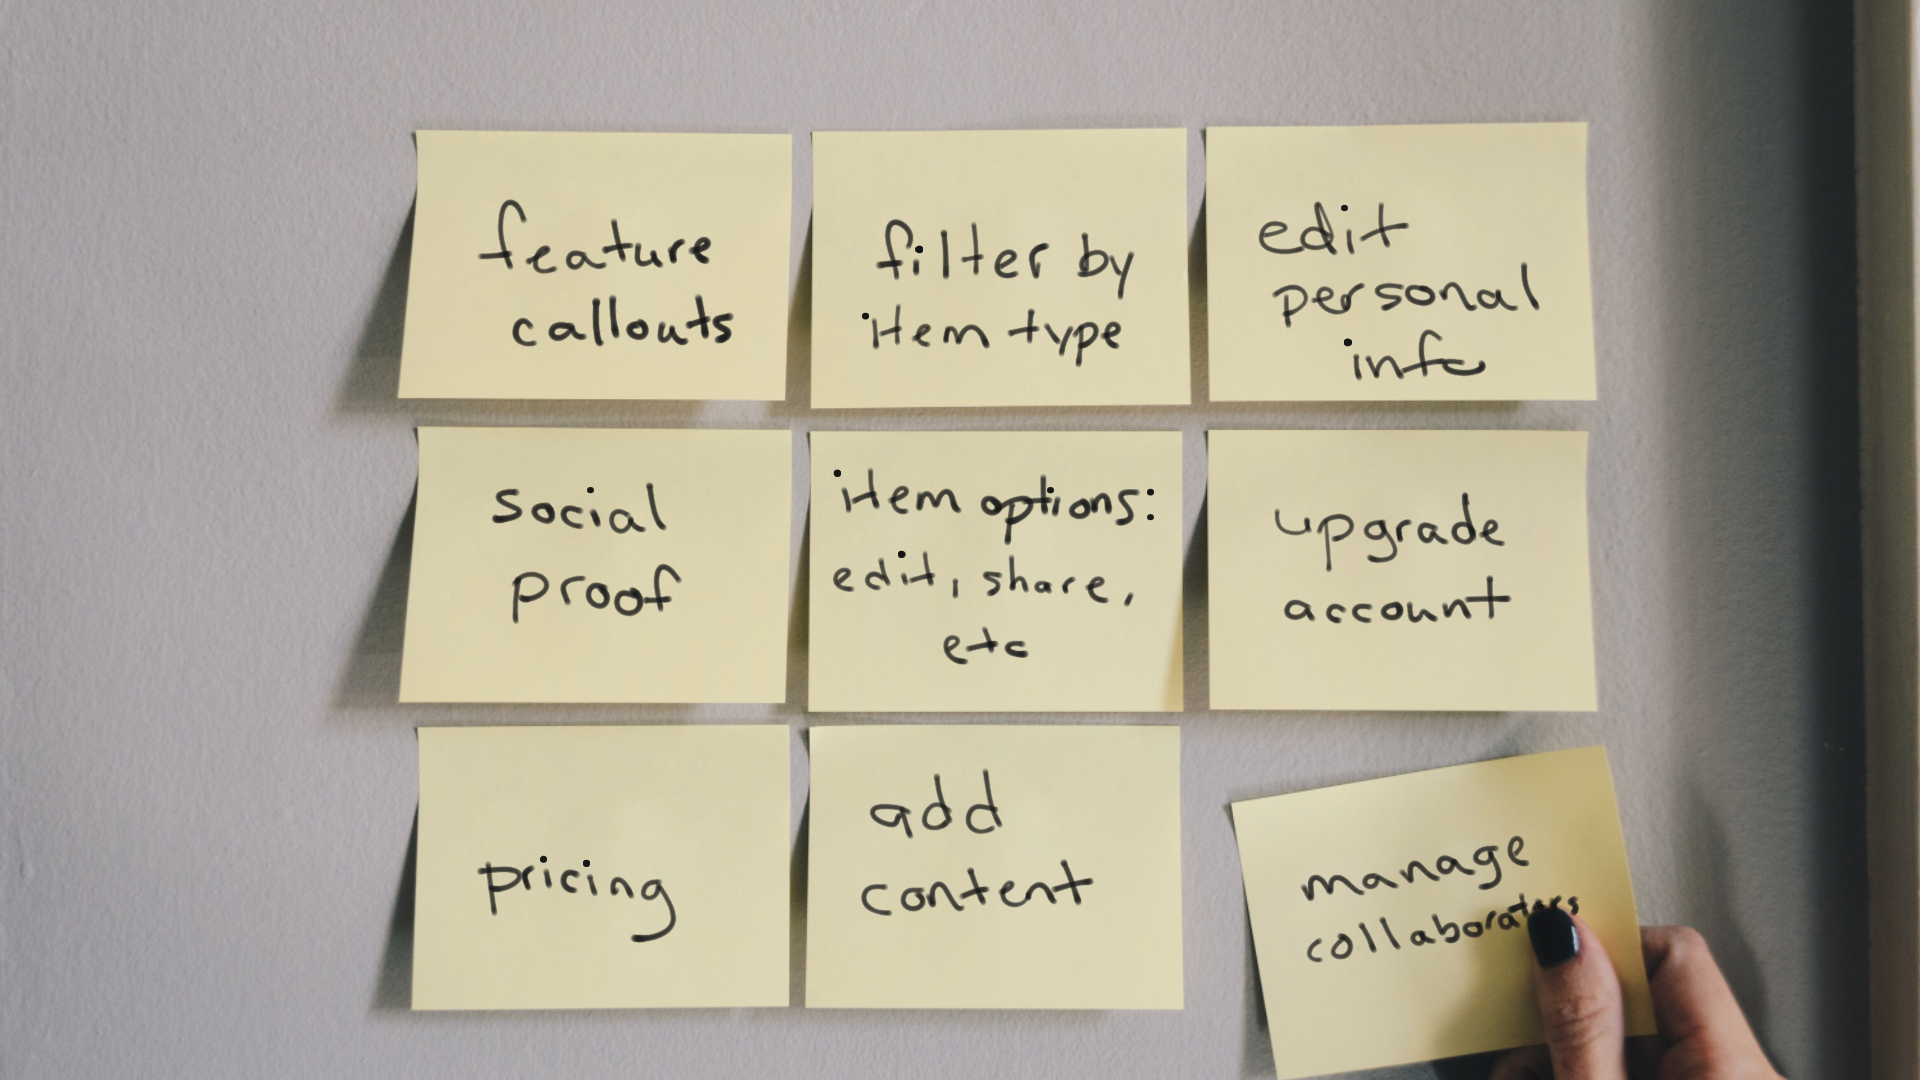 feature
callouts
filter by
item type
edit
personal
info
social
proof
item options:
edit, share,
etc
upgrade
account
pricing
add
content
manage
collaborators